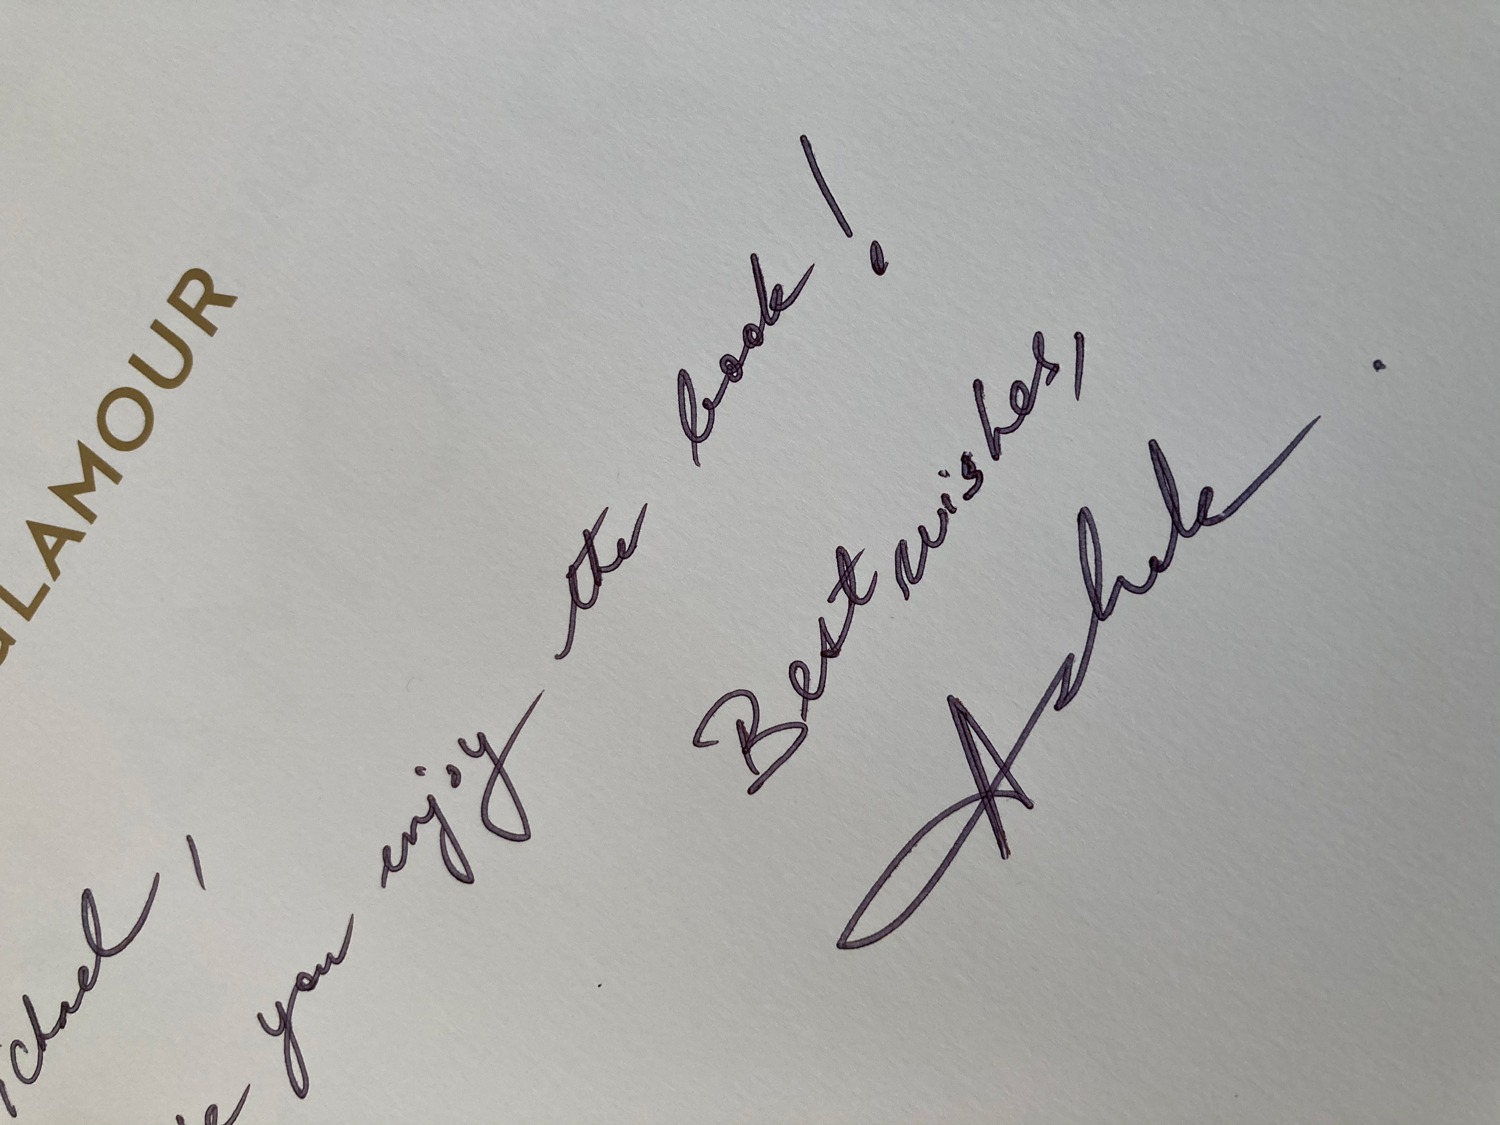 GLAMOUR
ichael,
you enjoy the book!
Best wishes,
Ashok.